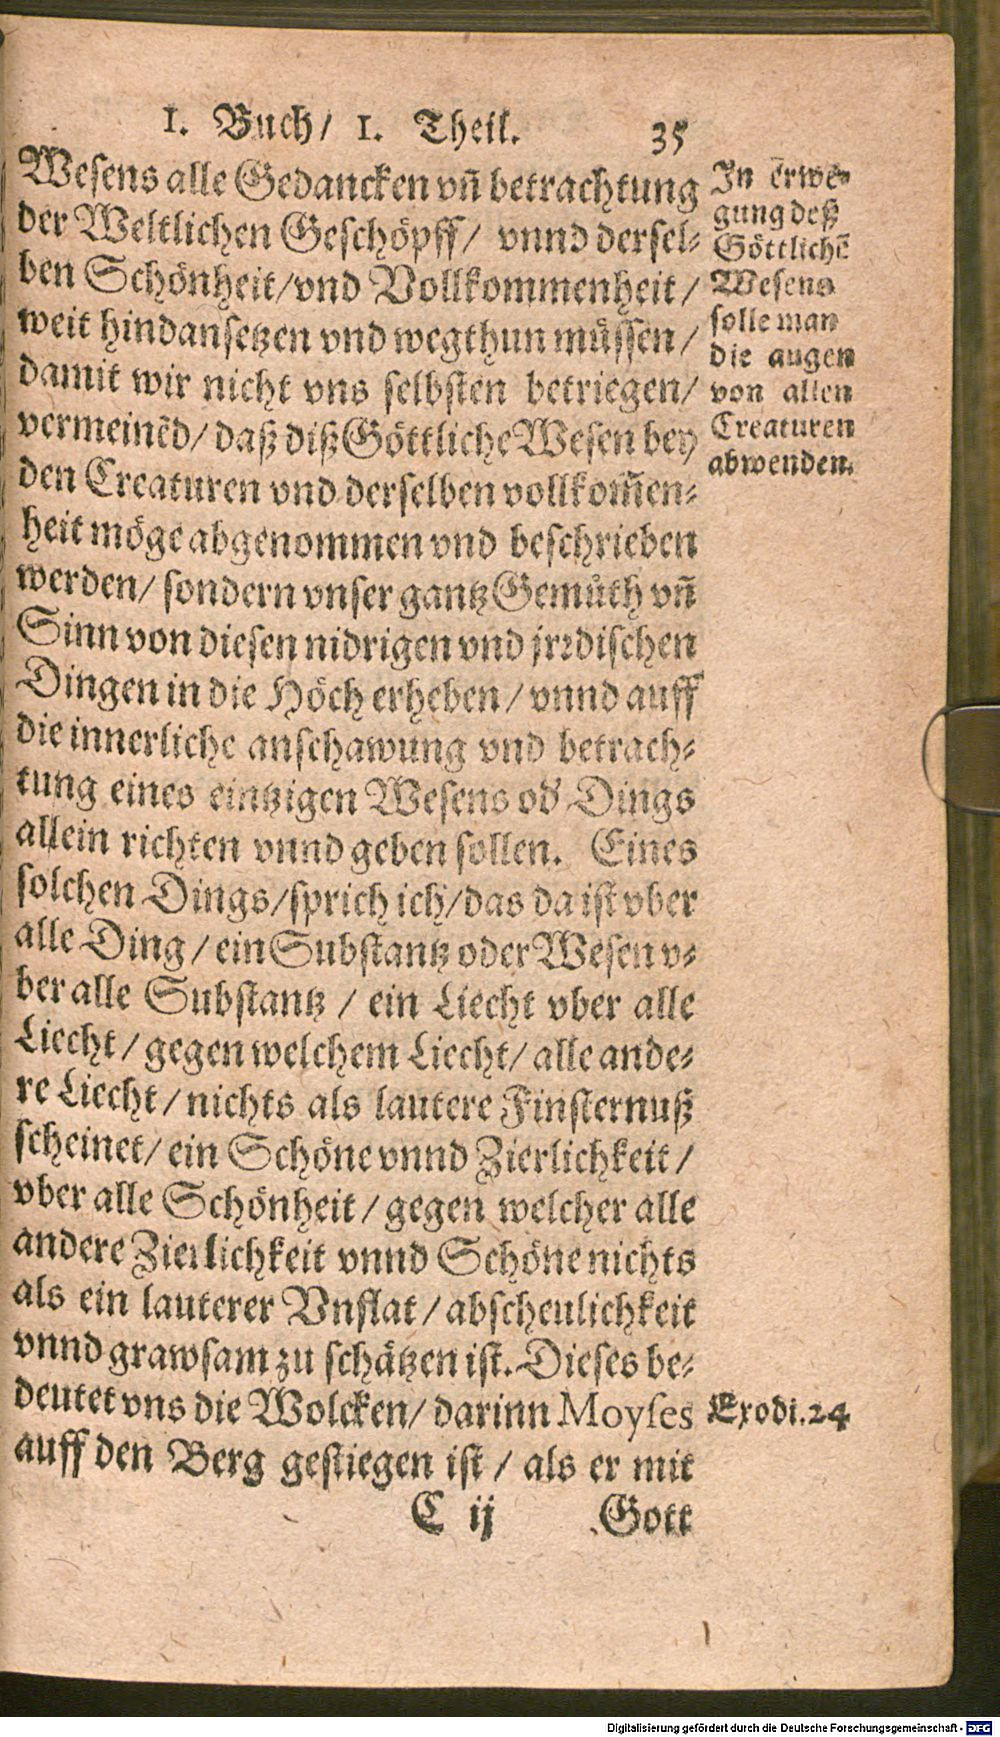 1. Buch/ 1. Theil. 35
Wesens alle Gedancken vñ betrachtung
der Weltlichen Geschöpff/ vnnd dersel-
ben Schönheit/vnd Vollkommenheit/
weit hindansetzen vnd wegthun müssen/
damit wir nicht vns selbsten betriegen/
vermeinẽd/ daß diß Göttliche Wesen bey
den Creaturen vnd derselben vollkom̃en-
heit möge abgenommen vnd beschrieben
werden/ sondern vnser gantz Gemüth vñ
Sinn von diesen nidrigen vnd jrrdischen
Dingen in die Höch erheben/ vnnd auff
die innerliche anschawung vnd betrach-
tung eines eintzigen Wesens od' Dings
allein richten vnnd geben sollen. Eines
solchen Dings/sprich ich/das da ist vber
alle Ding/ ein Substantz oder Wesen v-
ber alle Substantz / ein Liecht vber alle
Liecht/ gegen welchem Liecht/ alle ande-
re Liecht/ nichts als lautere Finsternuß
scheinet/ ein Schöne vnnd Zierlichkeit/
vber alle Schönheit/ gegen welcher alle
andere Zierlichkeit vnnd Schöne nichts
als ein lauterer Vnflat/ abscheulichkeit
vnnd grawsam zu schätzen ist. Dieses be-
deutet vns die Wolcken/ darinn Moyses
auff den Berg gestiegen ist / als er mit
C ij Gott
In erwe-
gung deß
Göttlichẽ
Wesens
solle man
die augen
von allen
Creaturen
abwenden.
Exodi.24
Digitalisierung gefördert durch die Deutsche Forschungsgemeinschaft - DFG